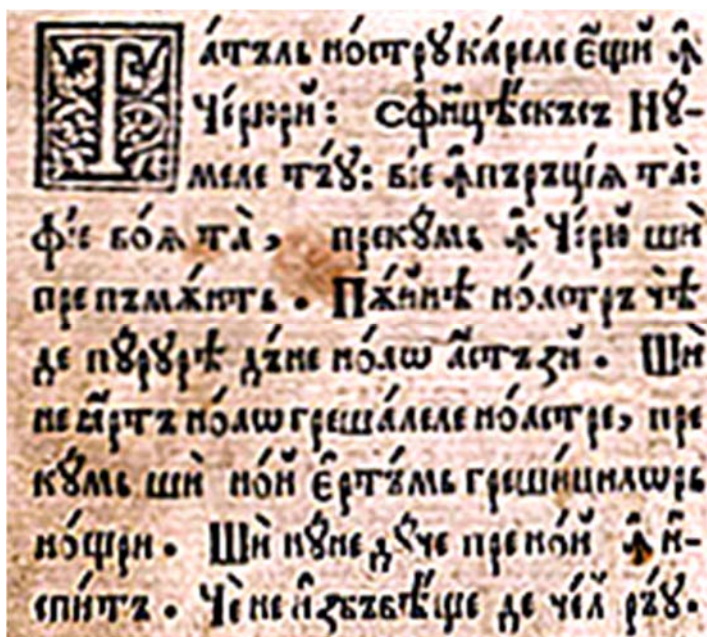 Татъль нострꙋ кареле є҆щй ꙟ҆
Чєрюри: Сфинцѣскъсъ Нꙋ-
мєлє тъ́ꙋ: віє ꙟ҆пъръціѧ та̀:
фі́є во́ѧ та̀, прєкꙋмь ꙟ҆ Чє́рю шѝ
прє пъмѫ́нть. Пѫ́йнѣ но́астръ чѣ
дє пꙋ́рꙋрѣ дъ́нє но́аѡ а҆стъзй. Шѝ
нє ꙗ҆ртъ но́аѡ грєша́лєлє но́астрє, прє
кꙋмь шѝ но́й є҆ртъ́мь грєши́цилѡрь
но́щри. Шѝ нꙋнє дꙋчє прє но́й ꙟ҆ и҆-
спи́тъ. Чѐ нє и҆збъвѣ́щє дє чє́л ръ́ꙋ.